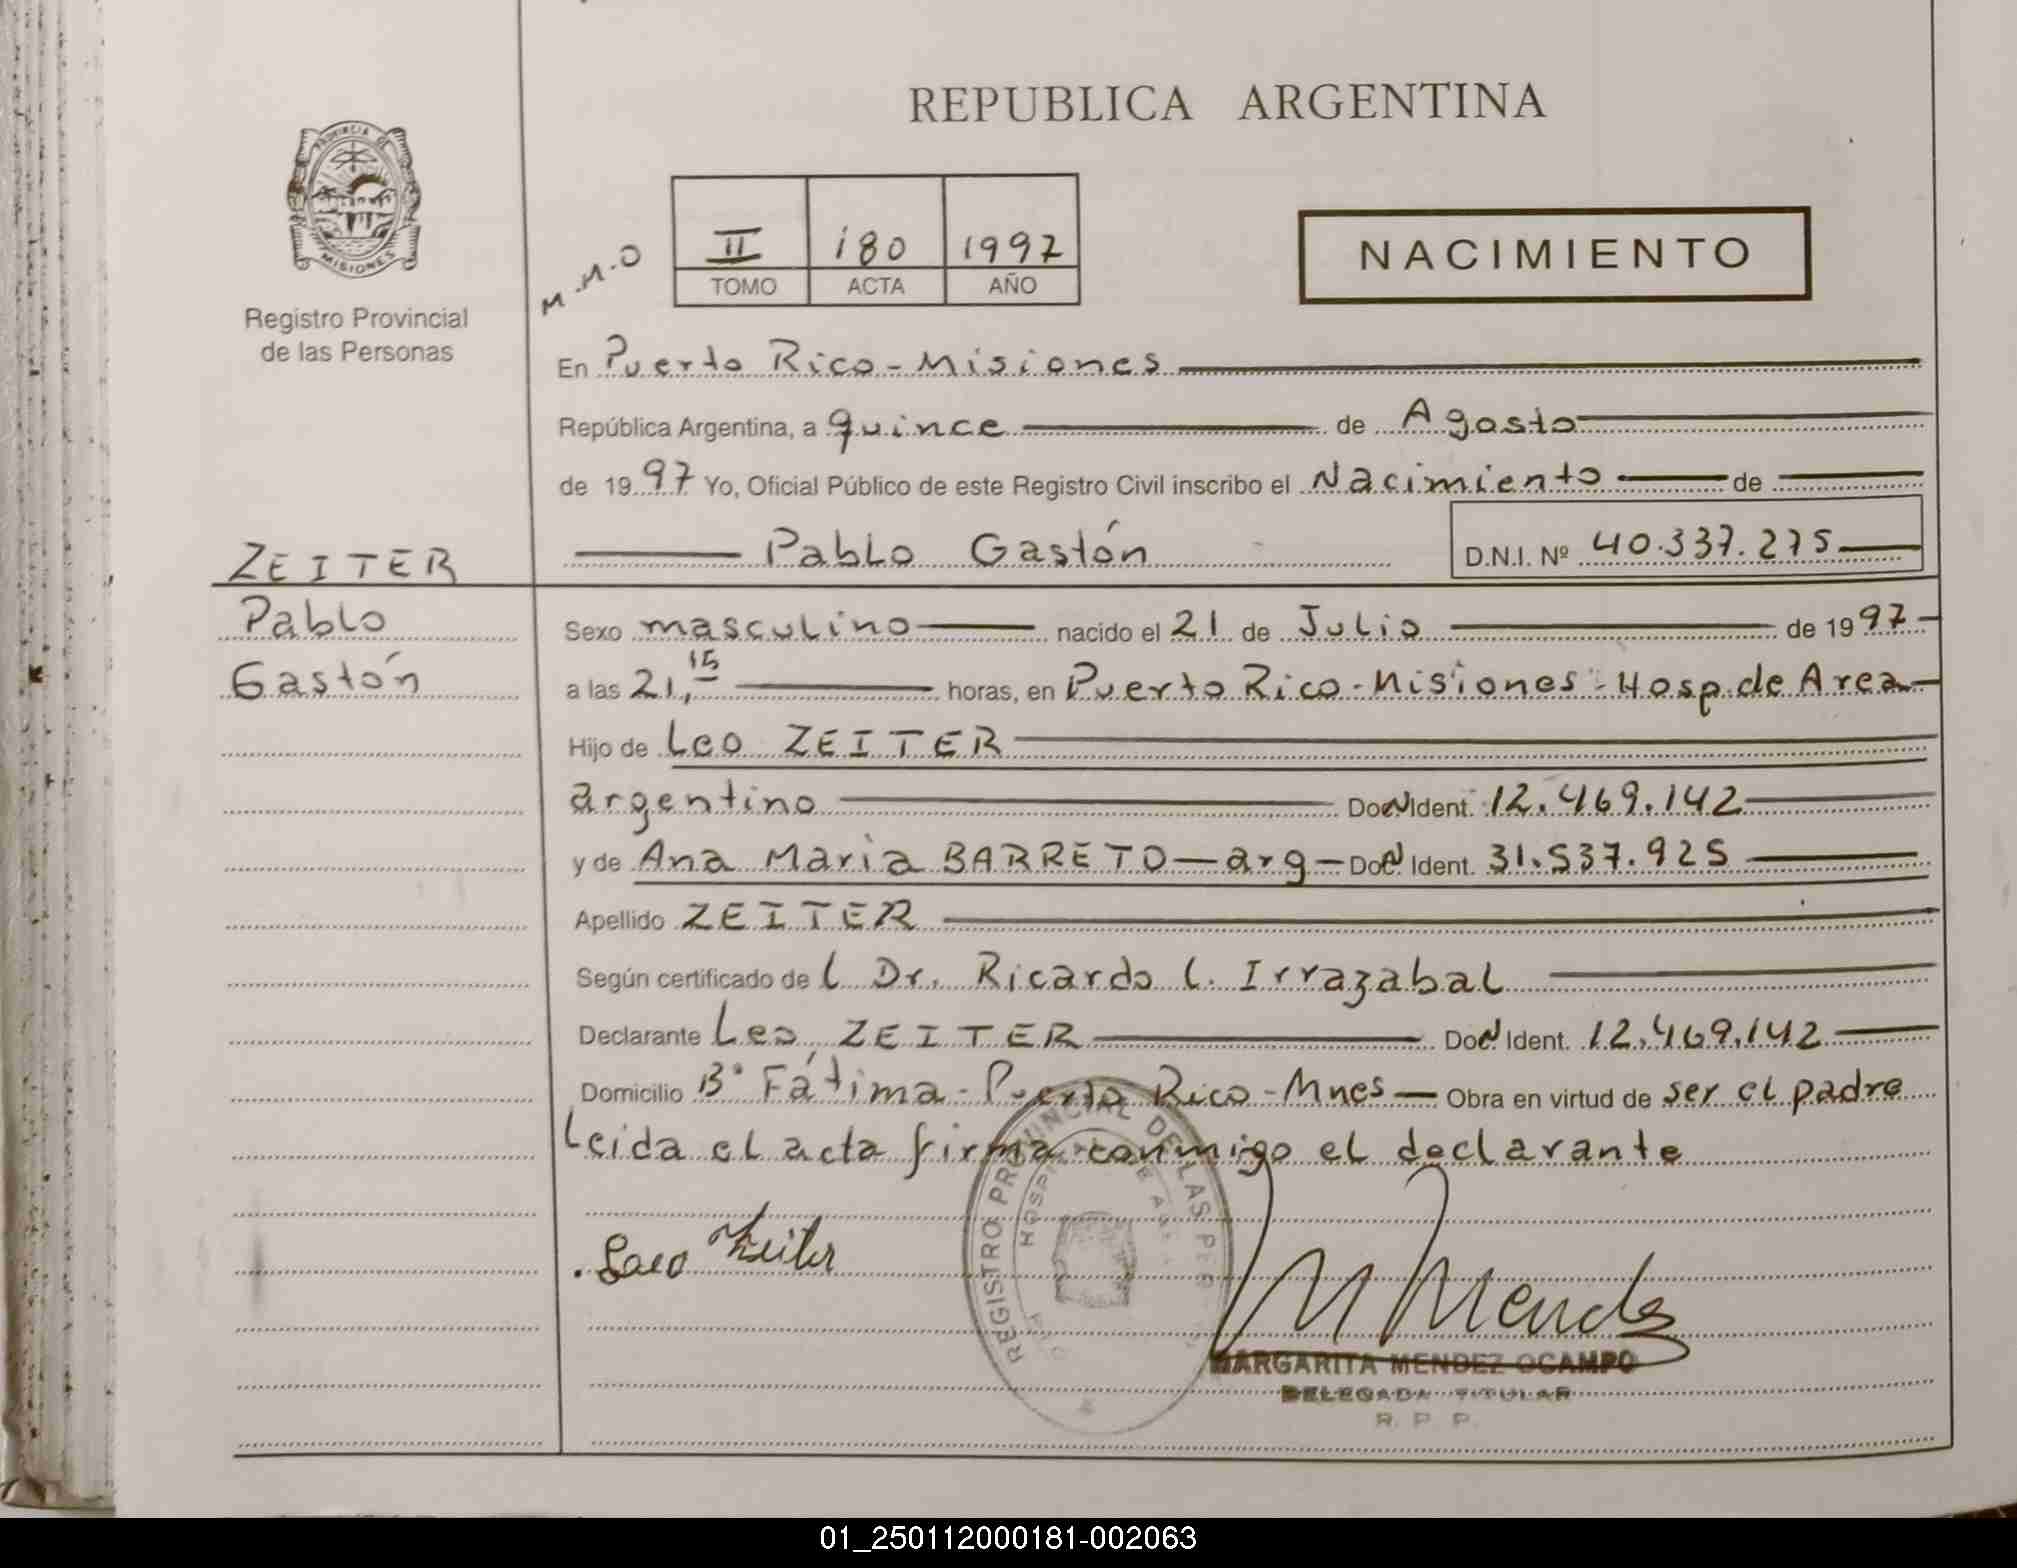 REPUBLICA ARGENTINA
PROVINCIA DE MISIONES
Registro Provincial
de las Personas
M.M.O
II 180 1997
TOMO ACTA AÑO
NACIMIENTO
En Puerto Rico - Misiones
República Argentina, a quince de Agosto
de 1997 Yo, Oficial Público de este Registro Civil inscribo el Nacimiento de
Pablo Gastón D.N.I. Nº 40.337.275
ZEITER
Pablo
Gastón
Sexo masculino nacido el 21 de Julio de 1997
a las 21,15 horas, en Puerto Rico - Misiones - Hosp. de Area
Hijo de Leo ZEITER
argentino Doc Ident. 12.469.142
y de Ana Maria BARRETO - arg - Doc Ident. 31.537.925
Apellido ZEITER
Según certificado de l Dr. Ricardo l. Irrazabal
Declarante Leo ZEITER Doc Ident. 12.469.142
Domicilio Bº Fátima - Puerto Rico - Mnes - Obra en virtud de ser el padre
Leida el acta firma conmigo el declarante
Leo Zeiter
M Mendez
REGISTRO PROVINCIAL DE LAS PER
HOSPITAL DE AREA
MARGARITA MENDEZ OCAMPO
DELEGADA TITULAR
R. P. P.
01_250112000181-002063